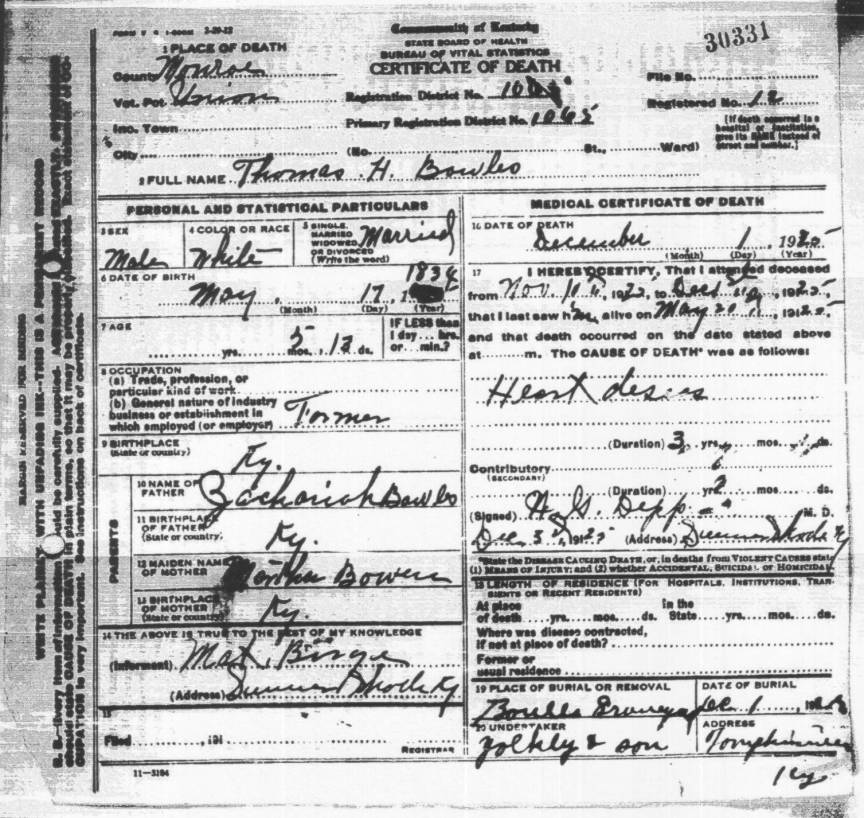 FORM V S 1-50M 3-20-22
Commonwealth of Kentucky
STATE BOARD OF HEALTH
BUREAU OF VITAL STATISTICS
CERTIFICATE OF DEATH
30331
1 PLACE OF DEATH
County Monroe
Vot. Pct Union
Inc. Town
City (No. St., Ward)
Registration District No.
Primary Registration District No. 1065
File No.
Registered No. 12
[If death occurred in a
hospital or institution,
give its NAME instead of
street and number.]
2 FULL NAME Thomas H. Bowles
PERSONAL AND STATISTICAL PARTICULARS
3 SEX
Male
4 COLOR OR RACE
White
5 SINGLE,
MARRIED
WIDOWED
OR DIVORCED
(Write the word)
Married
6 DATE OF BIRTH
May 17, 1834
(Month) (Day) (Year)
7 AGE
yrs. 5 mos. 13 ds.
IF LESS than
1 day... hrs.
or... min.?
8 OCCUPATION
(a) Trade, profession, or
particular kind of work
(b) General nature of industry
business or establishment in
which employed (or employer) Farmer
9 BIRTHPLACE
(State or country) Ky.
PARENTS
10 NAME OF
FATHER Zachariah Bowles
11 BIRTHPLACE
OF FATHER
(State or country) Ky.
12 MAIDEN NAME
OF MOTHER Martha Bowen
13 BIRTHPLACE
OF MOTHER
(State or country) Ky.
14 THE ABOVE IS TRUE TO THE BEST OF MY KNOWLEDGE
(Informent) Mat
(Address) Summer Shade Ky
15
Filed , 191
REGISTRAR
11—3184
MEDICAL CERTIFICATE OF DEATH
16 DATE OF DEATH
December 1, 1925
(Month) (Day) (Year)
17 I HEREBY CERTIFY, That I attended deceased
from Nov. , 1922, to Dec , 1925
that I last saw him alive on May 20, 1925
and that death occurred on the date stated above
at m. The CAUSE OF DEATH* was as follows:
Heart deseas
(Duration) 3 yrs. mos. ds.
Contributory
(SECONDARY)
(Duration) yrs. 2 mos. ds.
(Signed) H. G. Depp M. D.
Dec 3, 1925 (Address) Summer Shade Ky
*State the DISEASE CAUSING DEATH, or, in deaths from VIOLENT CAUSES state
(1) MEANS OF INJURY; and (2) whether ACCIDENTAL, SUICIDAL or HOMICIDAL
18 LENGTH OF RESIDENCE (FOR HOSPITALS, INSTITUTIONS, TRANSIENTS OR RECENT RESIDENTS)
At place In the
of death yrs. mos. ds. State yrs. mos. ds.
Where was disease contracted,
if not at place of death?
Former or
usual residence
19 PLACE OF BURIAL OR REMOVAL
Bowles Graveyard
DATE OF BURIAL
Dec 1, 192
20 UNDERTAKER
& Son
ADDRESS
Tompkinsville
Ky
MARGIN RESERVED FOR BINDING
WRITE PLAINLY, WITH UNFADING INK—THIS IS A PERMANENT RECORD
N. B.—Every item of information should be carefully supplied.
CAUSE OF DEATH in plain terms, so that it may be properly
OCCUPATION is very important. See instructions on back of certificate.